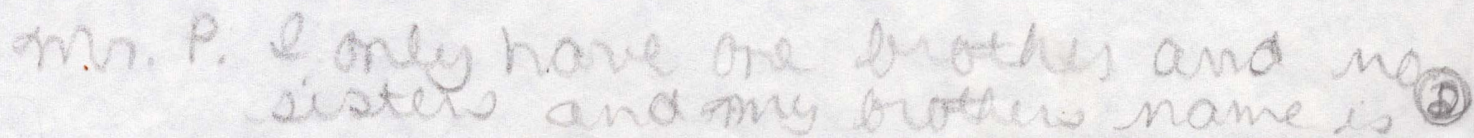 Mr. P. I only have one brother and no
sisters and my brothers name is ②